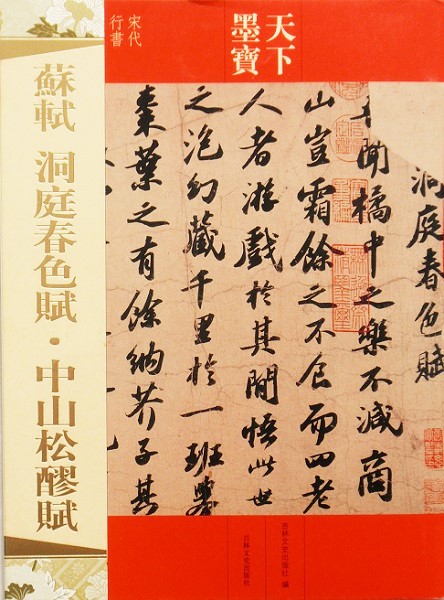 天下
墨寶
宋代
行書
洞庭春色賦
聞橘中之樂不減商
山豈霜餘之不食而四老
人者游戲於其間悟此世
之泡幻藏千里於一班舉
棗葉之有餘納芥子其
蘇軾 洞庭春色賦・中山松醪賦
吉林文史出版社 編
吉林文史出版社